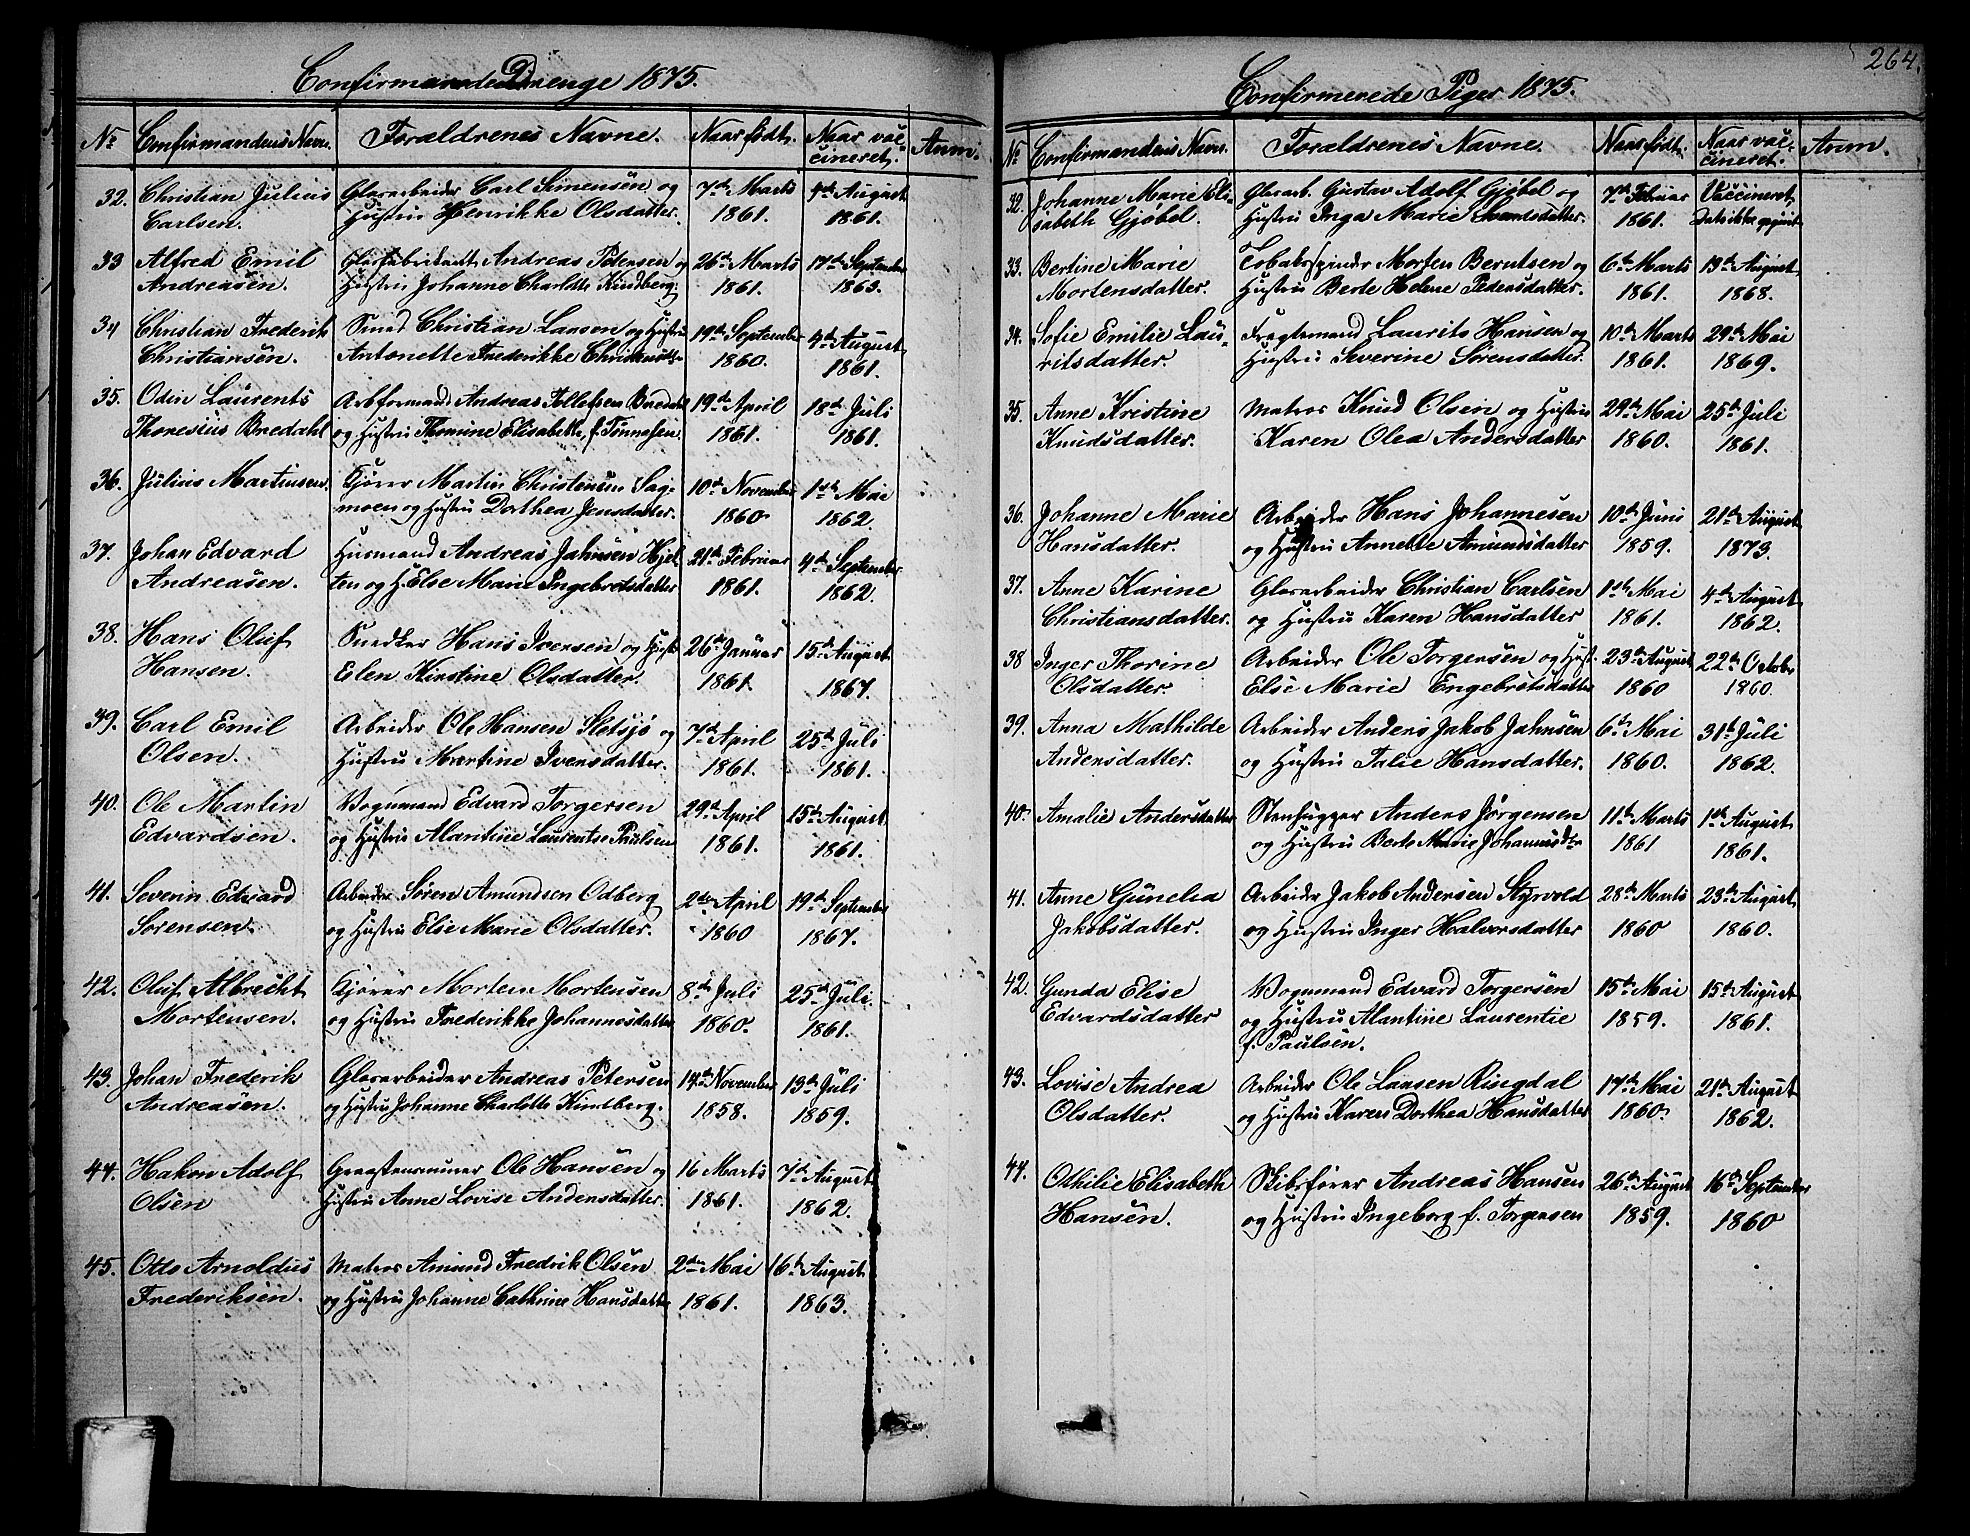 Confirmerede Drenge 1875.
Nº Confirmandens Navn. Forældrenes Navne. Naar født. Naar vac-
cineret. Anm.
32. Christian Julius Glasarbeider Carl Simensen og 7de Marts 4de August
Carlsen. Hustru Henrikke Olsdatter. 1861. 1861.
33 Alfred Emil Glasfabrikant Andreas Petersen og 26de Marts 17de September
Andreasen. Hustru Johanne Charlotte Kindberg. 1861. 1863.
34 Christian Frederik Smed Christian Larsen og Hustru 19de September 4de August
Christiansen. Antonette Frederikke 1860. 1861.
35. Odin Laurents Arbformand Andreas Tollefsen Bredahl 19de April 18de Juli
Thoresius Bredahl og Hustru Thomine Elisabeth f. Tønnesen. 1861. 1861.
36. Julius Martinsen. Kjører Martin Christensen Sag- 10de November 1ste Mai
moen og Hustru Dorthea Jensdatter. 1860. 1862.
37. Johan Edvard Husmand Andreas Jahnsen Hjel- 21de Februar 4de September
Andreasen. ten og H. Else Marie Ingebretsdatter 1861. 1862.
38. Hans Oluf Snedker Hans Iversen og Hust. 26de Januar 15de August
Hansen. Elen Kirstine Olsdatter. 1861. 1867.
39. Carl Emil Arbeider Ole Hansen Sletsjø og 7de April 25de Juli
Olsen. Hustru Martine Ivensdatter. 1861. 1861.
40. Ole Martin Vognmand Edvard Torgersen 29de April 15de August
Edvardsen. og Hustru Alantine Laurentse Paulsen 1861. 1861.
41. Severin Edvard Arbeider Søren Amundsen Odberg 2den April 19de September
Sørensen. og Hustru Elise Marie Olsdatter. 1860 1867.
42. Oluf Albrecht Kjører Morten Mortensen 8de Juli 25de Juli
Mortensen. og Hustru Frederikke Johannesdatter 1860. 1861.
43. Johan Frederik Glasarbeider Andreas Petersen 14de November 13de Juli
Andreasen. og Hustru Johanne Charlotte Kindberg. 1858. 1859.
44. Hakon Adolf Graastensmurer Ole Hansen og 16 Marts 7de August
Olsen Hustru Anne Lovise Andersdatter. 1861. 1862.
45. Otto Arnoldus Matros Amund Fredrik Olsen 2den Mai 16de August
Frederiksen. og Hustru Johanne Cathrine Hansdatter 1861. 1863.
264.
Confirmerede Piger 1875.
Nº Confirmandens Navn. Forældrenes Navne. Naar født. Naar vac-
cineret. Anm.
32. Johanne Marie Eli- Glasarb. Gustav Adolf Gjøbel og 7de Februar Vaccineret
sabeth Gjøbel. Hustru Inga Marie 1861. Dato ikke opgivet
33. Bertine Marie Tobakspinder Morten Berntsen og 6te Marts 13de August
Mortensdatter. Hustru Berte Helene Pedersdatter. 1861. 1868.
34. Sofie Emilie Lau- Fragtemand Laurits Hansen og 10de Marts 29de Mai
ritsdatter. Hustru Severine Sørensdatter. 1861. 1869.
35. Anne Kristine Matros Knud Olsen og Hustru 29de Mai 25de Juli
Knudsdatter. Karen Olea Andersdatter 1860. 1861.
36. Johanne Marie Arbeider Hans Johannesen 10de Juni 21de August
Hansdatter. og Hustru Annette Amundsdatter 1859. 1873.
37. Anne Karine Glasarbeider Christian Carlsen 1ste Mai 4de August
Christiansdatter. og Hustru Karen Hansdatter 1861. 1862.
38 Inger Thorine Arbeider Ole Torgersen og Hust. 23de August 22de Octobr
Olsdatter. Elise Marie Engebretsdatter 1860 1860
39. Anna Mathilde Arbeider Anders Jakob Jahnsen 6te Mai 31te Juli
Andersdatter. og Hustru Talie Hansdatter. 1860. 1862.
40. Amalie Andersdatter Stenhugger Anders Jørgensen 11te Marts 1ste August
og Hustru Berte Marie Johannesdtr 1861 1861.
41. Anne Gunelia Arbeider Jakob Andersen Styrvold 28de Marts 23de August
Jakobsdatter. og Hustru Inger Halvorsdatter 1860 1860.
42. Gunda Elise Vognmand Edvard Torgersen 15de Mai 15de August
Edvardsdatter og Hustru Alantine Laurentie 1859. 1861.
f. Paulsen.
43. Lovise Andrea Arbeider Ole Larsen Ringdal 17de Mai 21de August
Olsdatter. og Hustru Karen Dorthea Hansdatter 1860. 1862.
44. Othilie Elisabeth Skibsfører Andreas Hansen 26de August 16de September
Hansen. og Hustru Ingeborg f. Torgersen 1859. 1860